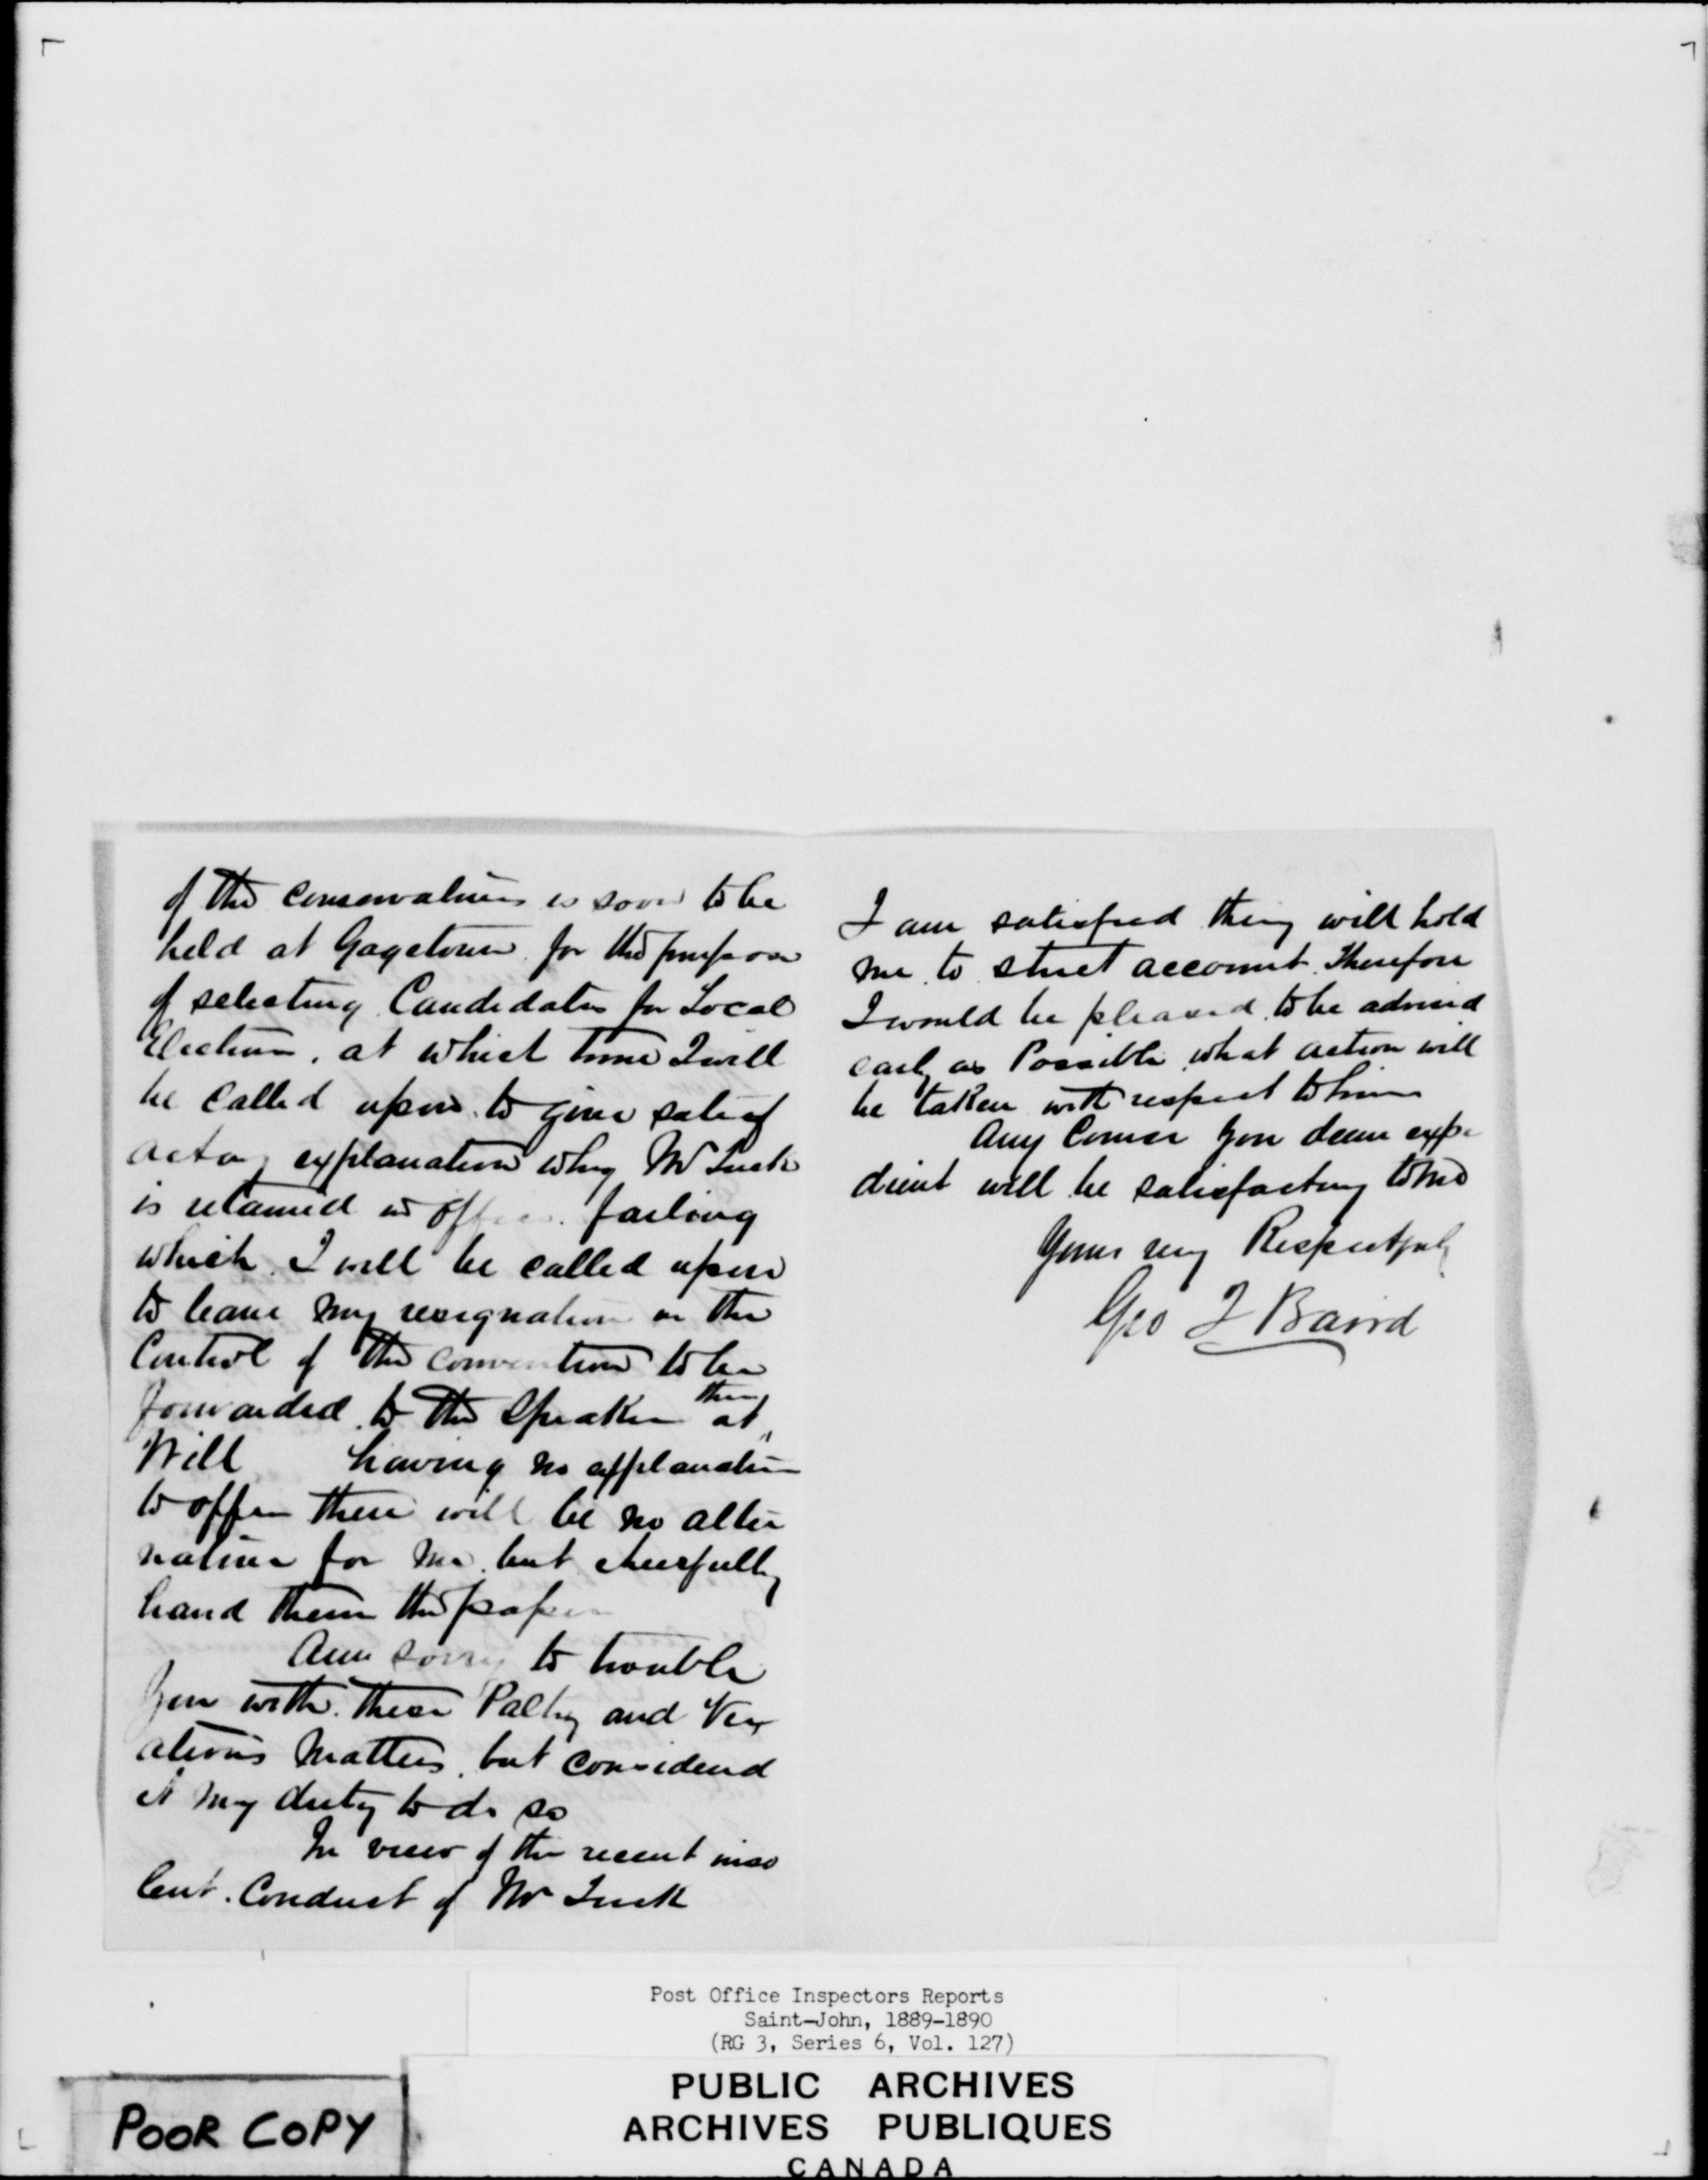 of the conservatives is soon to be
held at Gagetown for the purpose
of selecting Candidates for Local
Election, at which time I will
be called upon to give satisf
actory explanation why Mr
is retained in office. failing
which I will be called upon
to leave my resignation in the
Control of the convention to be
forwarded to the Speaker at their
Will having no explanation
to offer there will be no alter
native for me but cheerfully
hand them the paper
Am sorry to trouble
you with these Paltry and Vex
atious matters, but considered
it my duty to do so
In view of the recent inso
lent Conduct of Mr
I am satisfied they will hold
me to strict account. Therefore
I would be pleased to be advised
early as Possible what action will
be taken with respect to him
Any Course you deem expe
dient will be satisfactory to me
Yours very Respectfully
Geo F Baird
Post Office Inspectors Reports
Saint-John, 1889-1890
(RG 3, Series 6, Vol. 127)
POOR COPY
PUBLIC ARCHIVES
ARCHIVES PUBLIQUES
CANADA